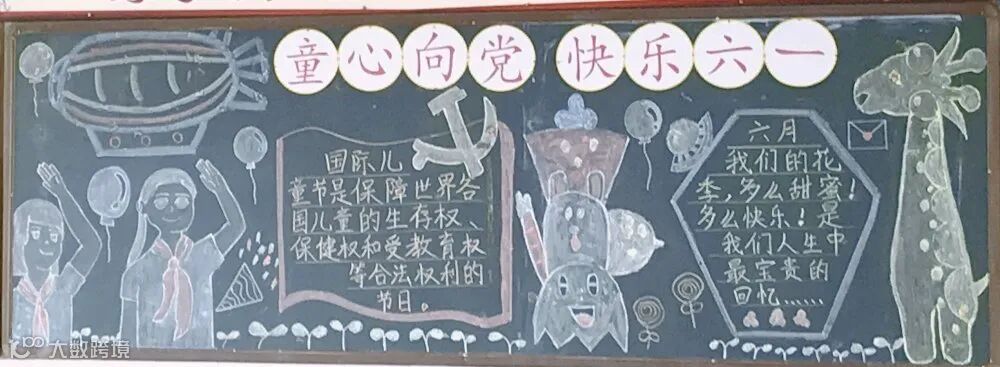 童心向党 快乐六一
国际儿
童节是保障世界各
国儿童的生存权、
保健权和受教育权
等合法权利的
节日。
六月
我们的花
季,多么甜蜜!
多么快乐!是
我们人生中
最宝贵的
回忆……
大数跨境